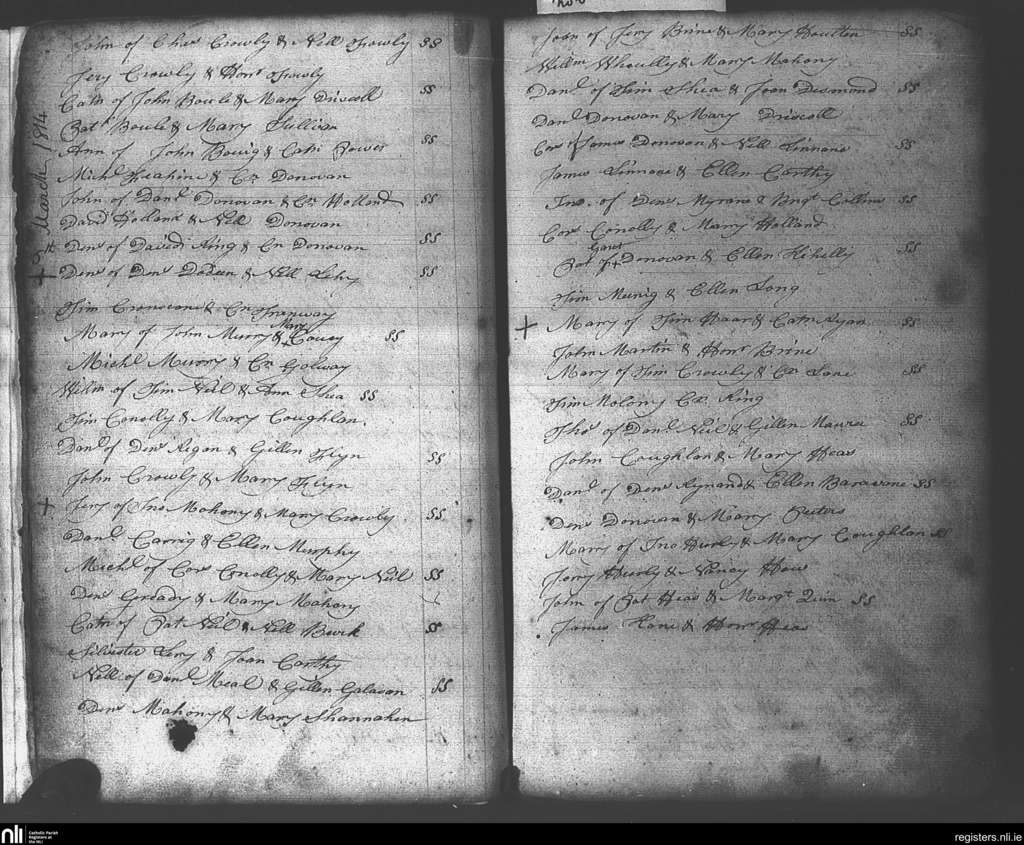 John of Chas Crowly & Nell Crowly SS
Jery Crowly & Honr Crowly
Catn of John Bowle & Mary Driscoll SS
Patk Bowle & Mary Sullivan
Ann of John Bowig & Catn Power SS
Michl & Cn Donovan
John of Danl Donovan & Cn Holland SS
David Holland & Nell Donovan
8th March 1814
Dens of David King & Cn Donovan SS
+ Dens of Dens & Nell Lehy SS
Tim & Cn
Mary of John Murry & Mary SS
Michl Murry & Cn Golway
Willm of Tim Neil & Ann Shea SS
Tim Conolly & Mary Coughlan
Danl of Dens Regan & Gillen Flyn SS
John Crowly & Mary Flyn
+ Jery of Jno Mahony & Mary Crowly SS
Danl Carrig & Ellen Murphy
Michl of Cors Conolly & Mary Neil SS
Dens Gready & Mary Mahony
Catn of Pat Neil & Nell Burk SS
Silvester & Joan Carthy
Nell of Danl Meal & Gillen Galavan SS
Dens Mahony & Mary Shannahen
Joan of Jery Brine & Mary SS
Willm & Mary Mahony
Danl of Tim Shea & Joan Desmond SS
Danl Donovan & Mary Driscoll
Cors of James Donovan & Nell Linnane SS
James Linnane & Ellen Carthy
Jno. of Dens & Brigt Collins SS
Cors Conolly & Mary Holland
Pat of Donovan & Ellen SS
Tim & Ellen Long
+ Mary of Tim & Catn Ryan SS
John Martin & Honr Brine
Mary of Tim Crowly & Cn Lane SS
Tim Molony Cn King
Thos of Danl Neil & Gillen SS
John Coughlan & Mary Heas
Danl of Dens & Ellen SS
Dens Donovan & Mary Peters
Mary of Jno Hurly & Mary Coughlan SS
Jerry Hurly & Nancy
John of Pat Heas & Margt Quin SS
James Kane & Honr Heas
nli
Catholic Parish
Registers at
the NLI
registers.nli.ie